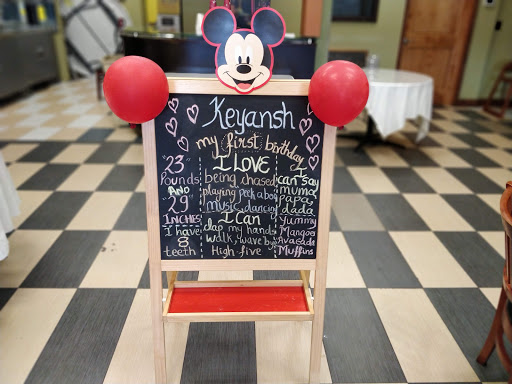 Keyansh
my first birthday
"23"
Pounds
AND
"29"
INCHES
I have
8
teeth
I LOVE
being chased
playing peek a boo
music, dancing
I can
clap my hands
walk, wave bye
High-five
I can say
mumma
papa
dada
Yummy
Mangoes
Avacado
Muffins